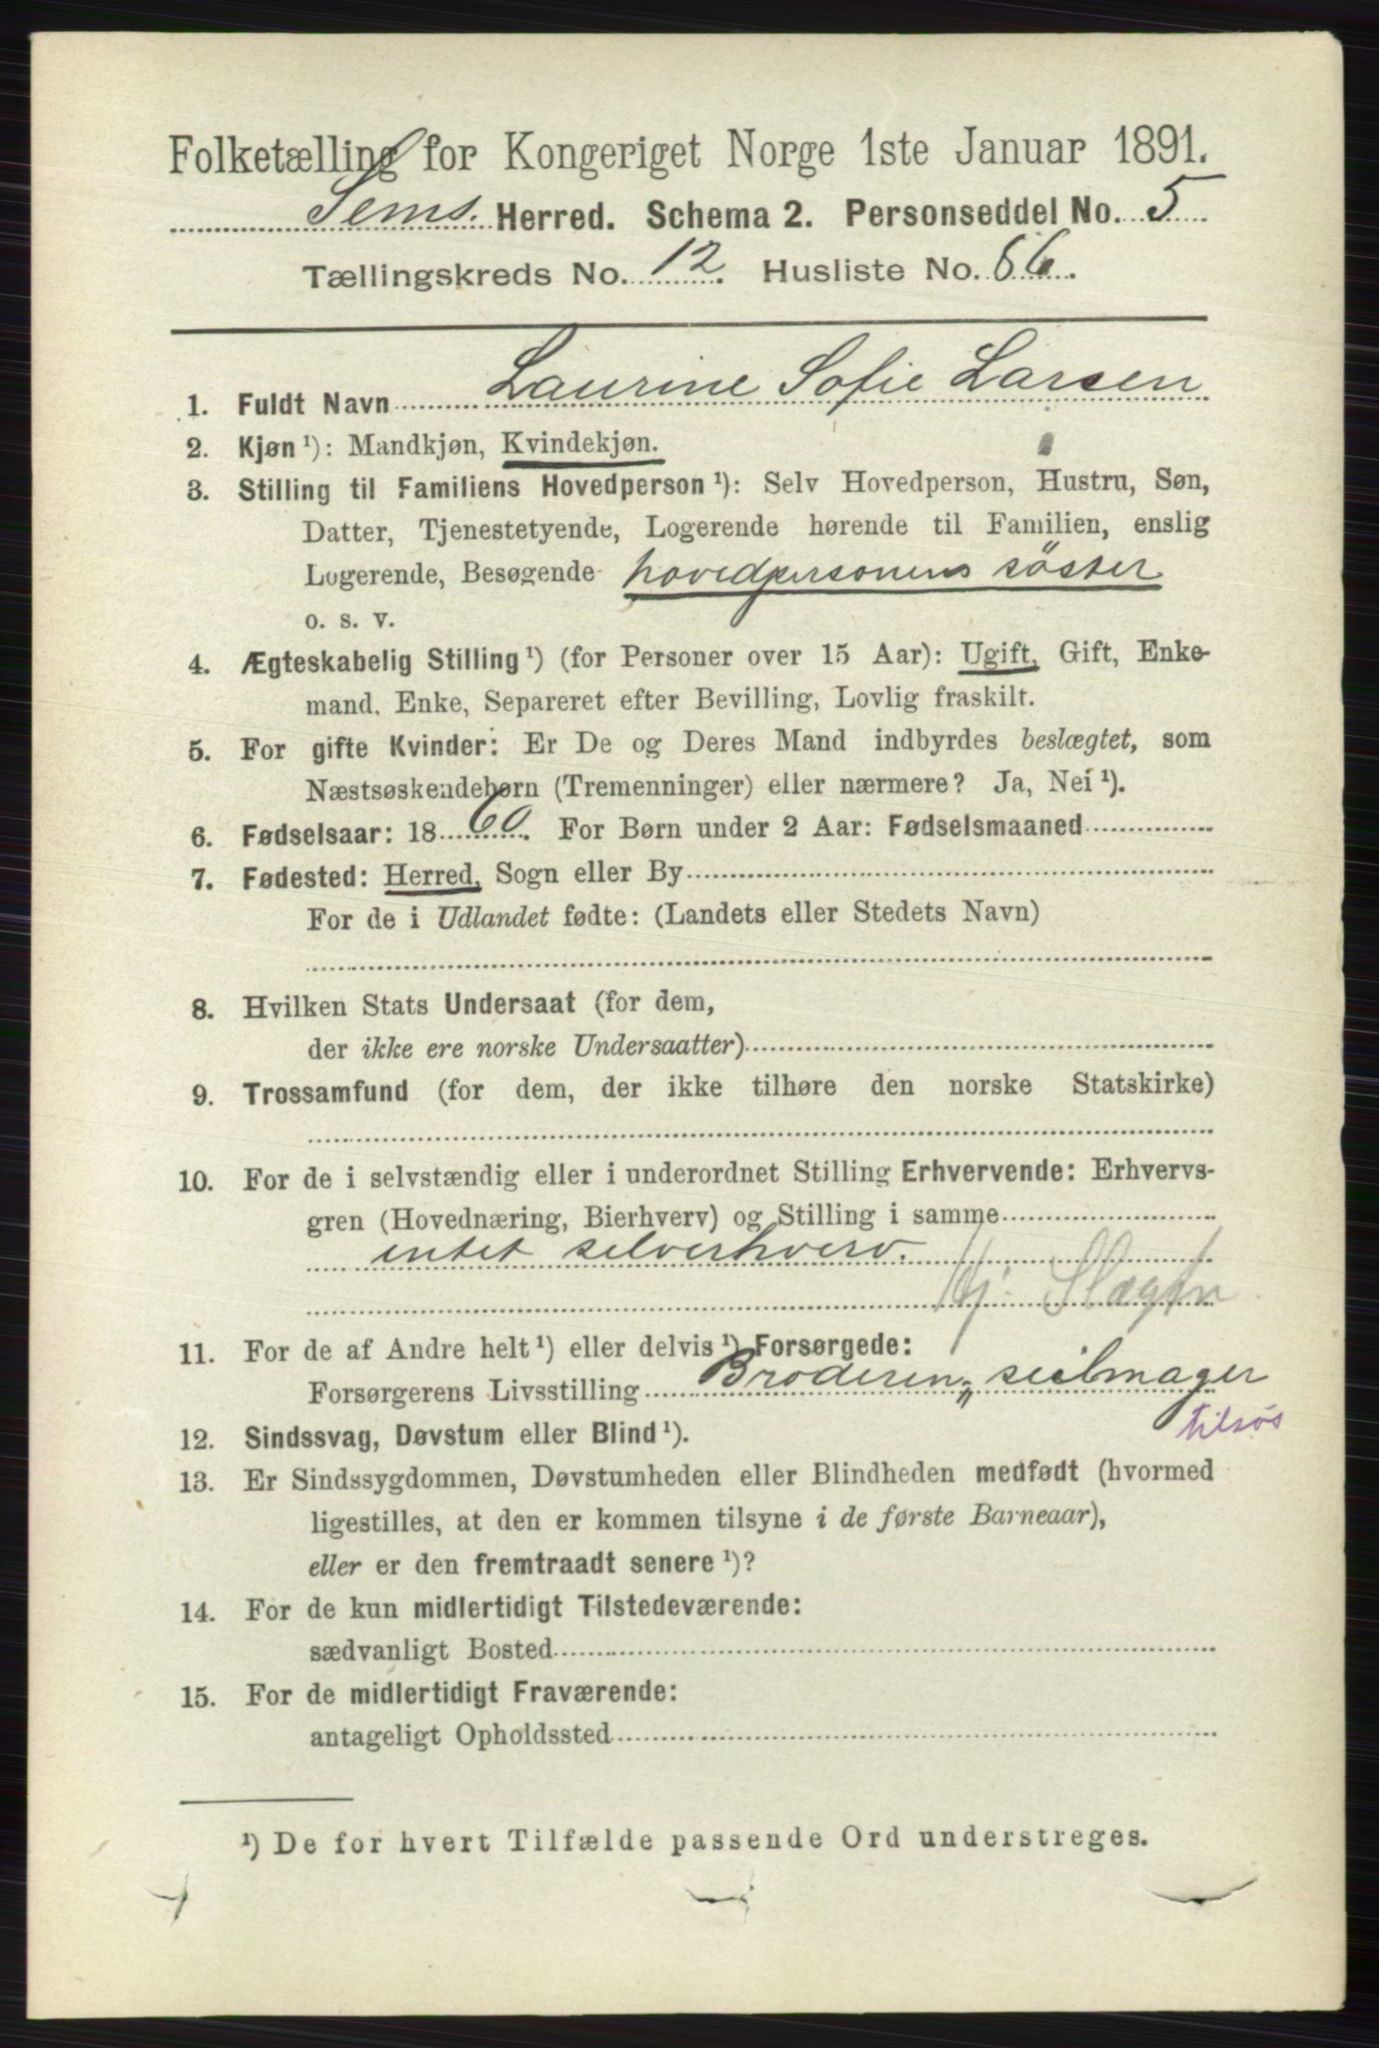 Folketælling for Kongeriget Norge 1ste Januar 1891.
Sems. Herred. Schema 2. Personseddel No. 5
Tællingskreds No. 12. Husliste No. 66.
1. Fuldt Navn Laurine Sofie Larsen
2. Kjøn¹): Mandkjøn, Kvindekjøn.
3. Stilling til Familiens Hovedperson¹): Selv Hovedperson, Hustru, Søn,
Datter, Tjenestetyende, Logerende hørende til Familien, enslig
Logerende, Besøgende hovedpersonens söster
o. s. v.
4. Ægteskabelig Stilling¹) (for Personer over 15 Aar): Ugift, Gift, Enke-
mand, Enke, Separeret efter Bevilling, Lovlig fraskilt.
5. For gifte Kvinder: Er De og Deres Mand indbyrdes beslægtet, som
Næstsøskendebørn (Tremenninger) eller nærmere? Ja, Nei¹).
6. Fødselsaar: 1860. For Børn under 2 Aar: Fødselsmaaned
7. Fødested: Herred, Sogn eller By
For de i Udlandet fødte: (Landets eller Stedets Navn)
8. Hvilken Stats Undersaat (for dem,
der ikke ere norske Undersaatter)
9. Trossamfund (for dem, der ikke tilhøre den norske Statskirke)
10. For de i selvstændig eller i underordnet Stilling Erhvervende: Erhvervs-
gren (Hovednæring, Bierhverv) og Stilling i samme
intet selverhverv.
Hj. Slægtn
11. For de af Andre helt¹) eller delvis¹) Forsørgede:
Forsørgerens Livsstilling Broderen „ seilmager
tilsøs
12. Sindssvag, Døvstum eller Blind¹).
13. Er Sindssygdommen, Døvstumheden eller Blindheden medfødt (hvormed
ligestilles, at den er kommen tilsyne i de første Barneaar),
eller er den fremtraadt senere¹)?
14. For de kun midlertidigt Tilstedeværende:
sædvanligt Bosted
15. For de midlertidigt Fraværende:
antageligt Opholdssted
¹) De for hvert Tilfælde passende Ord understreges.